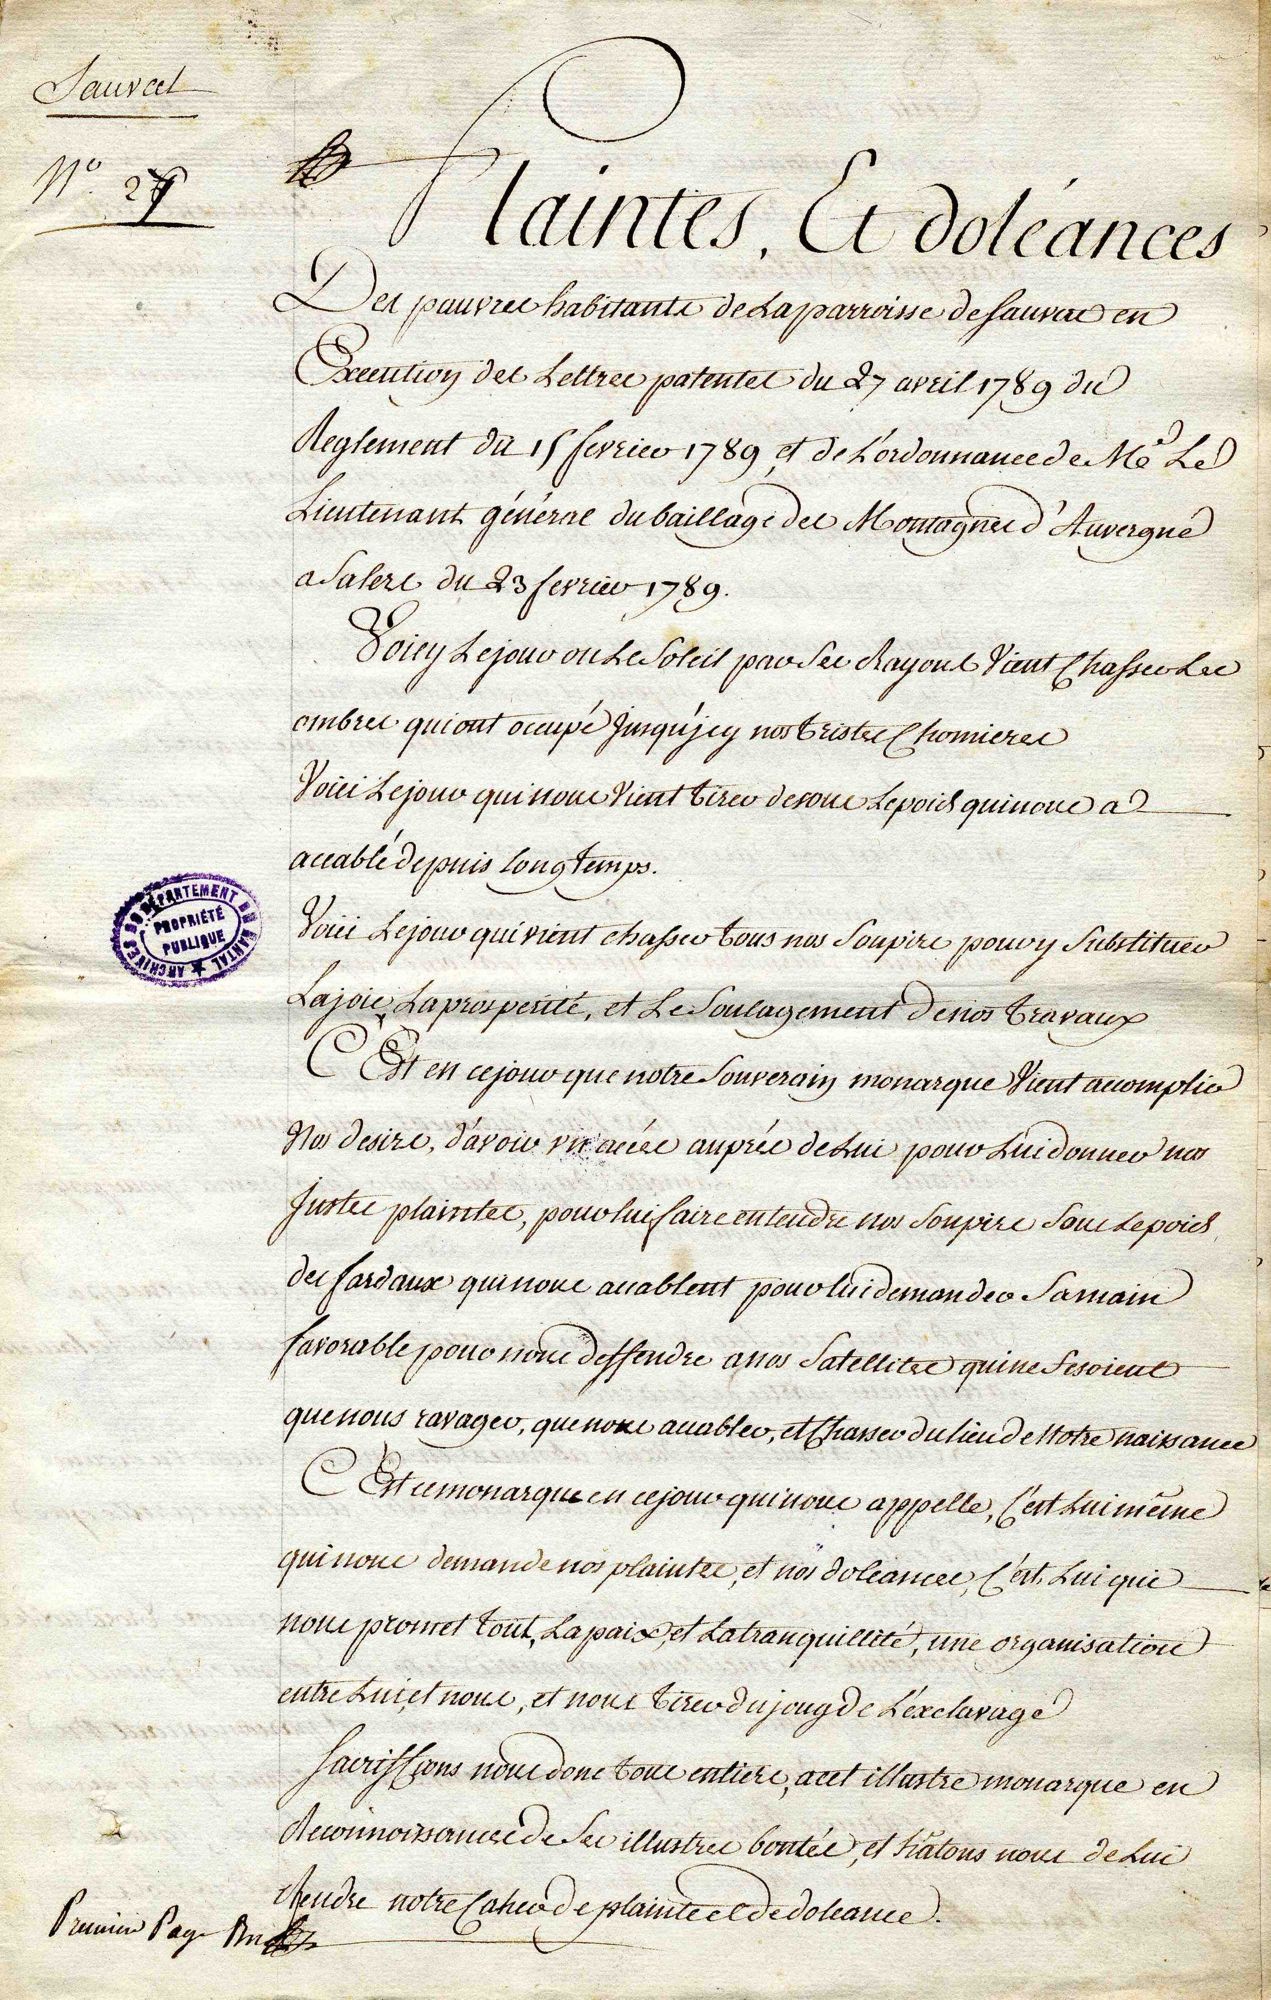 Sauvat
N.o 27
Plaintes, Et doléances
Des pauvres habitants de La parroisse de Sauvat en
Execution des Lettres patentes du 27 avril 1789 du
Reglement du 15 fevrier 1789, et de L'ordonnance de Mr Le
Lieutenant général du baillage des Montagnes d'Auvergne
a Salers du 23 fevrier 1789.
Voicy Le jour ou Le Soleil par Ses Rayons Vient Chasser Les
ombres qui ont occupé Jusqu'jcy nos tristes Chomieres
Voici Le jour qui nous Vient tirer de sous Le poids qui nous a
accablé depuis Longtemps.
Voici Le jour qui vient chasser tous nos Soupirs pour y Substituer
La joie, La prosperité, et Le Soulagement de nos travaux
C'Est en ce jour que notre Souverain monarque Vient accomplir
Nos desirs, d'avoir un accés auprés de Lui pour Lui donner nos
Justes plaintes, pour lui faire entendre nos Soupirs Sous Le poids
des fardaux qui nous accablent pour lui demander Sa main
favorable pour nous deffendre a nos Satellites qui ne fesoient
que nous ravager, que nous accabler, et Chasser du lieu de Notre naissance
C'Est ce monarque en ce jour qui nous appelle, C'est Lui même
qui nous demande nos plaintes, et nos doleances, C'est Lui qui
nous promet tout, La paix, et La tranquillité, une organisation
entre Lui, et nous, et nous tirer du joug de L'exclavage
Sacriffions nous donc tous entiers, a cet illustre monarque en
Reconnoissance de Ses illustres bontés, et hâtons nous de Lui
Rendre notre Caher de plaintes et de doleances.
Premier Page
ARCHIVES DU DÉPARTEMENT DU CANTAL
PROPRIÉTÉ
PUBLIQUE